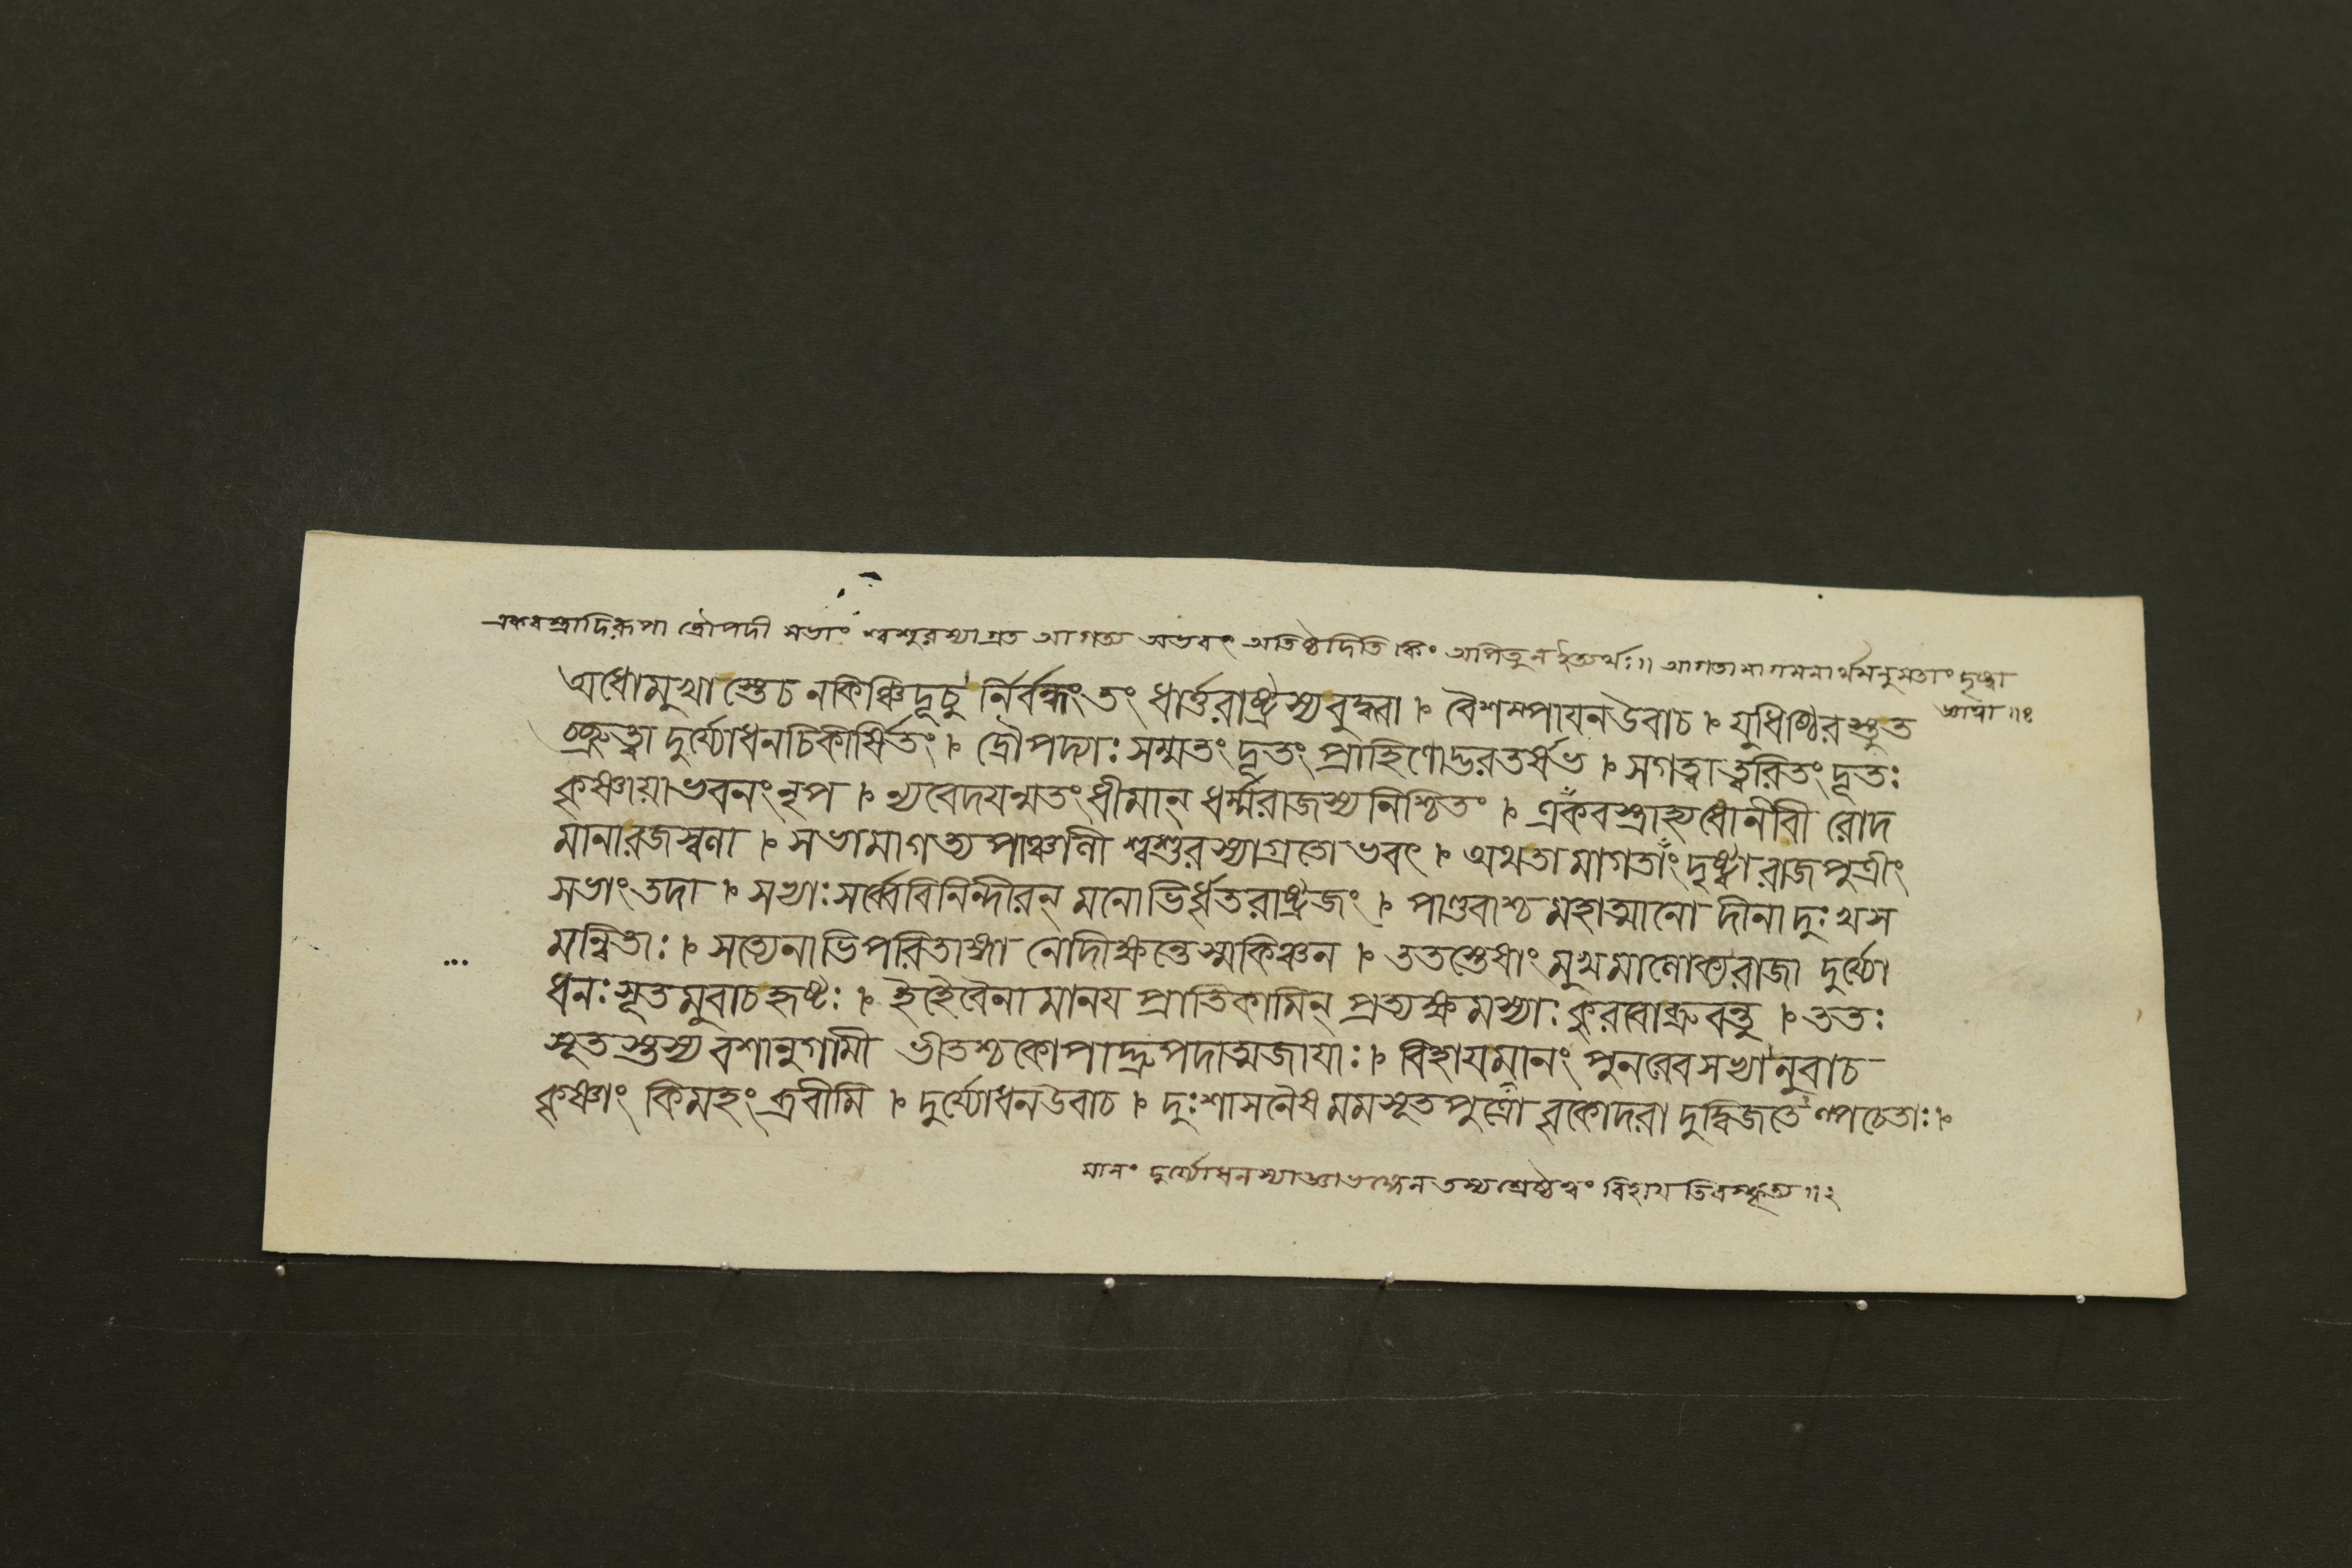 একবস্ত্রাদিরূপা দ্রৌপদী সভাং শ্বশুরস্যাগ্রত আগত্য অভবৎ অতিষ্ঠদিতি কিং অপিতুনইত্যর্থঃ॥ আগতামাগমনার্থমনুমতাং দৃষ্ট্বা
জ্ঞাত্বা॥১
অধোমুখাস্তেচ নকিঞ্চিদূচু র্নির্বন্ধংতং ধার্ত্তরাষ্ট্রস্যবুদ্ধ্বা । বৈশম্পাযনউবাচ । যুধিষ্ঠিরস্তুত
চ্ছ্রুত্বা দুর্য্যোধনচিকীর্ষিতং । দ্রৌপদ্যাঃ সম্মতং দূতং প্রাহিণোদ্ভরতর্ষভ । সগত্বাত্বরিতং দূতঃ
কৃষ্ণায়াভবনংনৃপ । ন্যবেদযন্মতংধীমান্ ধর্ম্মরাজস্যনিশ্চিতং । একবস্ত্রাহ্যধোনীবী রোদ
মানারজস্বলা । সভামাগত্য পাঞ্চালী শ্বশুরস্যাগ্রতো ভবৎ । অথতামাগতাংদৃষ্ট্বা রাজপুত্রীং
সভাংতদা । সভ্যাঃসর্ব্বেবিনিন্দীরন্ মনোভির্ধৃতরাষ্ট্রজং । পাণ্ডবাশ্চ মহাত্মানো দীনা দুঃখস
মন্বিতাঃ । সত্যেনাভিপরিতাঙ্গা নোদীক্ষন্তেস্মকিঞ্চন । ততস্তেষাং মুখমালোক্যরাজা দুর্য্যো
ধনঃসূতমুবাচহৃষ্টঃ । ইহৈবৈনামানয প্রাতিকামিন্ প্রত্যক্ষমস্যাঃ কুরবোব্রুবন্তু । ততঃ
সূতস্তস্য বশানুগামী ভীতশ্চকোপাদ্দ্রুপদাত্মজাযাঃ । বিহাযমানং পুনরেবসভ্যানুবাচ
কৃষ্ণাং কিমহংব্রবীমি । দুর্য্যোধনউবাচ । দুঃশাসনৈষ মমসূতপুত্রো বৃকোদরা দুদ্বিজতেল্পচেতাঃ ।
মানং দুর্য্যোধনস্যাজ্ঞাভঙ্গেনতস্যশ্রেষ্ঠত্বং বিহায তিরস্কৃত্য॥২